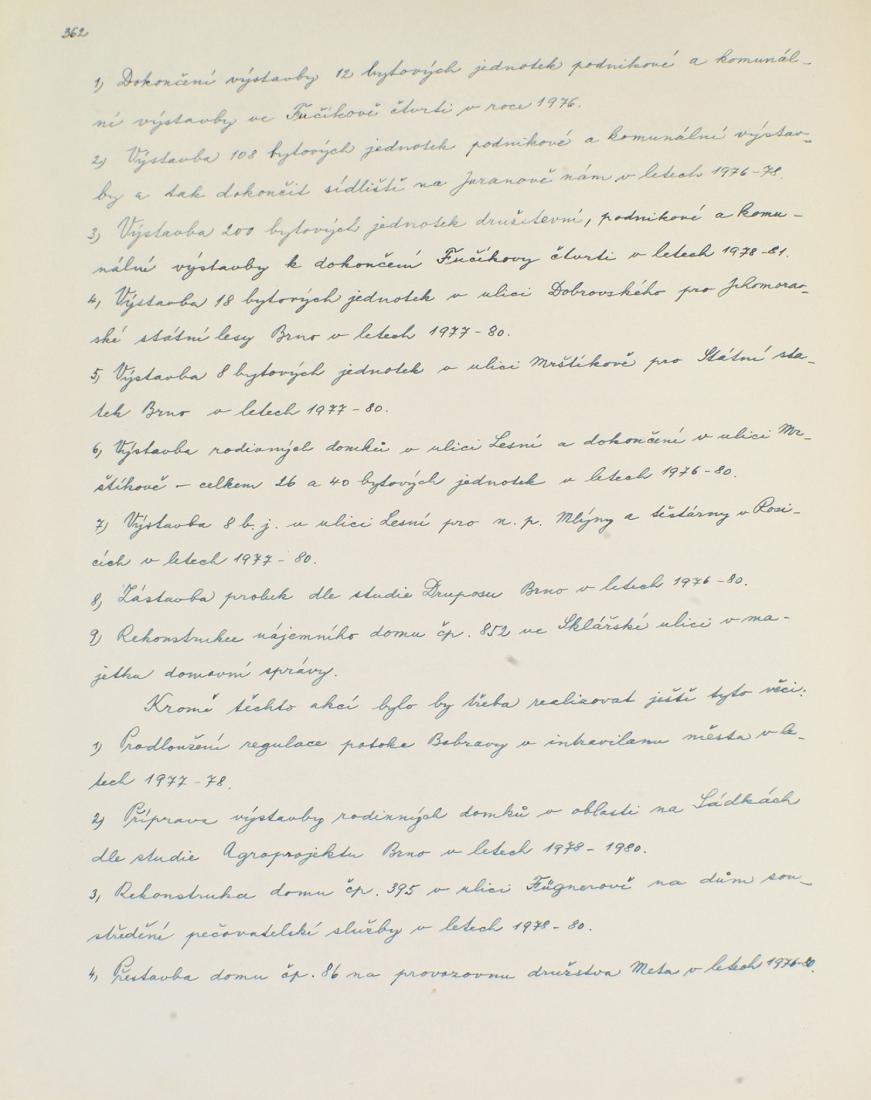 362
1) Dokončení výstavby 12 bytových jednotek podnikové a komunál-
ní výstavby ve Fučíkově čtvrti v roce 1976.
2) Výstavba 108 bytových jednotek podnikové a komunální výstav-
by a tak dokončit sídliště na Juranově nám v letech 1976-78.
3) Výstavba 200 bytových jednotek družstevní, podnikové a komu-
nální výstavby k dokončení Fučíkovy čtvrti v letech 1978-81.
4) Výstavba 18 bytových jednotek v ulici Dobrovského pro Jihomorav-
ské státní lesy Brno v letech 1977-80.
5) Výstavba 8 bytových jednotek v ulici Mrštíkově pro Státní sta-
tek Brno v letech 1977-80.
6) Výstavba rodinných domků v ulici Lesní a dokončení v ulici Mr-
štíkově - celkem 26 a 40 bytových jednotek v letech 1976-80.
7) Výstavba 8 b. j. v ulici Lesní pro n. p. Mlýny a těstárny v Rosi-
cích v letech 1977-80.
8) Zástavba proluk dle studie Druposu Brno v letech 1976-80.
9) Rekonstrukce nájemního domu čp. 852 ve Sklářské ulici v ma-
jetku domovní správy.
Kromě těchto akcí bylo by třeba realizovat ještě tyto věci:
1) Prodloužení regulace potoka Bobravy v intravilanu města v le-
tech 1977-78.
2) Příprava výstavby rodinných domků v oblasti na Sádkách
dle studie Agroprojektu Brno v letech 1978-1980.
3) Rekonstrukce domu čp. 395 v ulici Fügnerově na dům sou-
středění pečovatelské služby v letech 1978-80.
4) Přestavba domu čp. 86 na provozovnu družstva Meta v letech 1976-80.